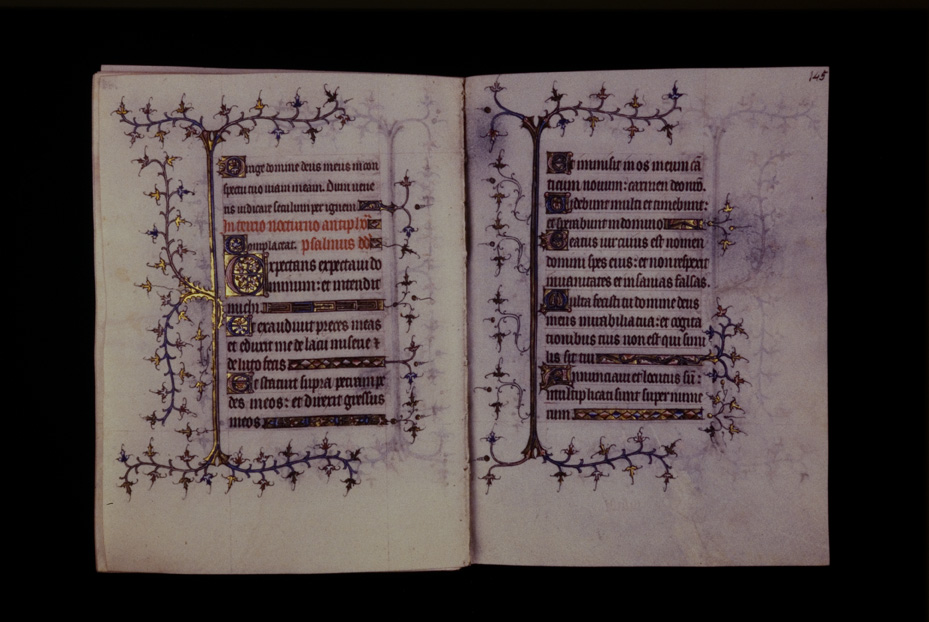 Dirige domine deus meus in con
spectu tuo viam meam. Dum vene
ris iudicare seculum per ignem.
In tercio nocturno antiph
Complaceat. psalmus dd
Expectans expectaui do
minum: et intendit
michi
Et exaudiuit preces meas
et eduxit me de lacu miserie 
de luto fecis
Et statuit supra petram pe
des meos: et direxit gressus
meos
145
Et immisit in os meum cā
ticum nouum: carmen deo nrō.
Uidebunt multi et timebunt:
et sperabunt in domino
Beatus uir cuius est nomen
domini spes eius: et non respexit
in uanitates et insanias falsas.
Multa fecisti tu domine deus
meus mirabilia tua: et cogita
tionibus tuis non est qui simi
lis sit tibi
Annunciaui et locutus sū:
multiplicati sunt super nume
rum